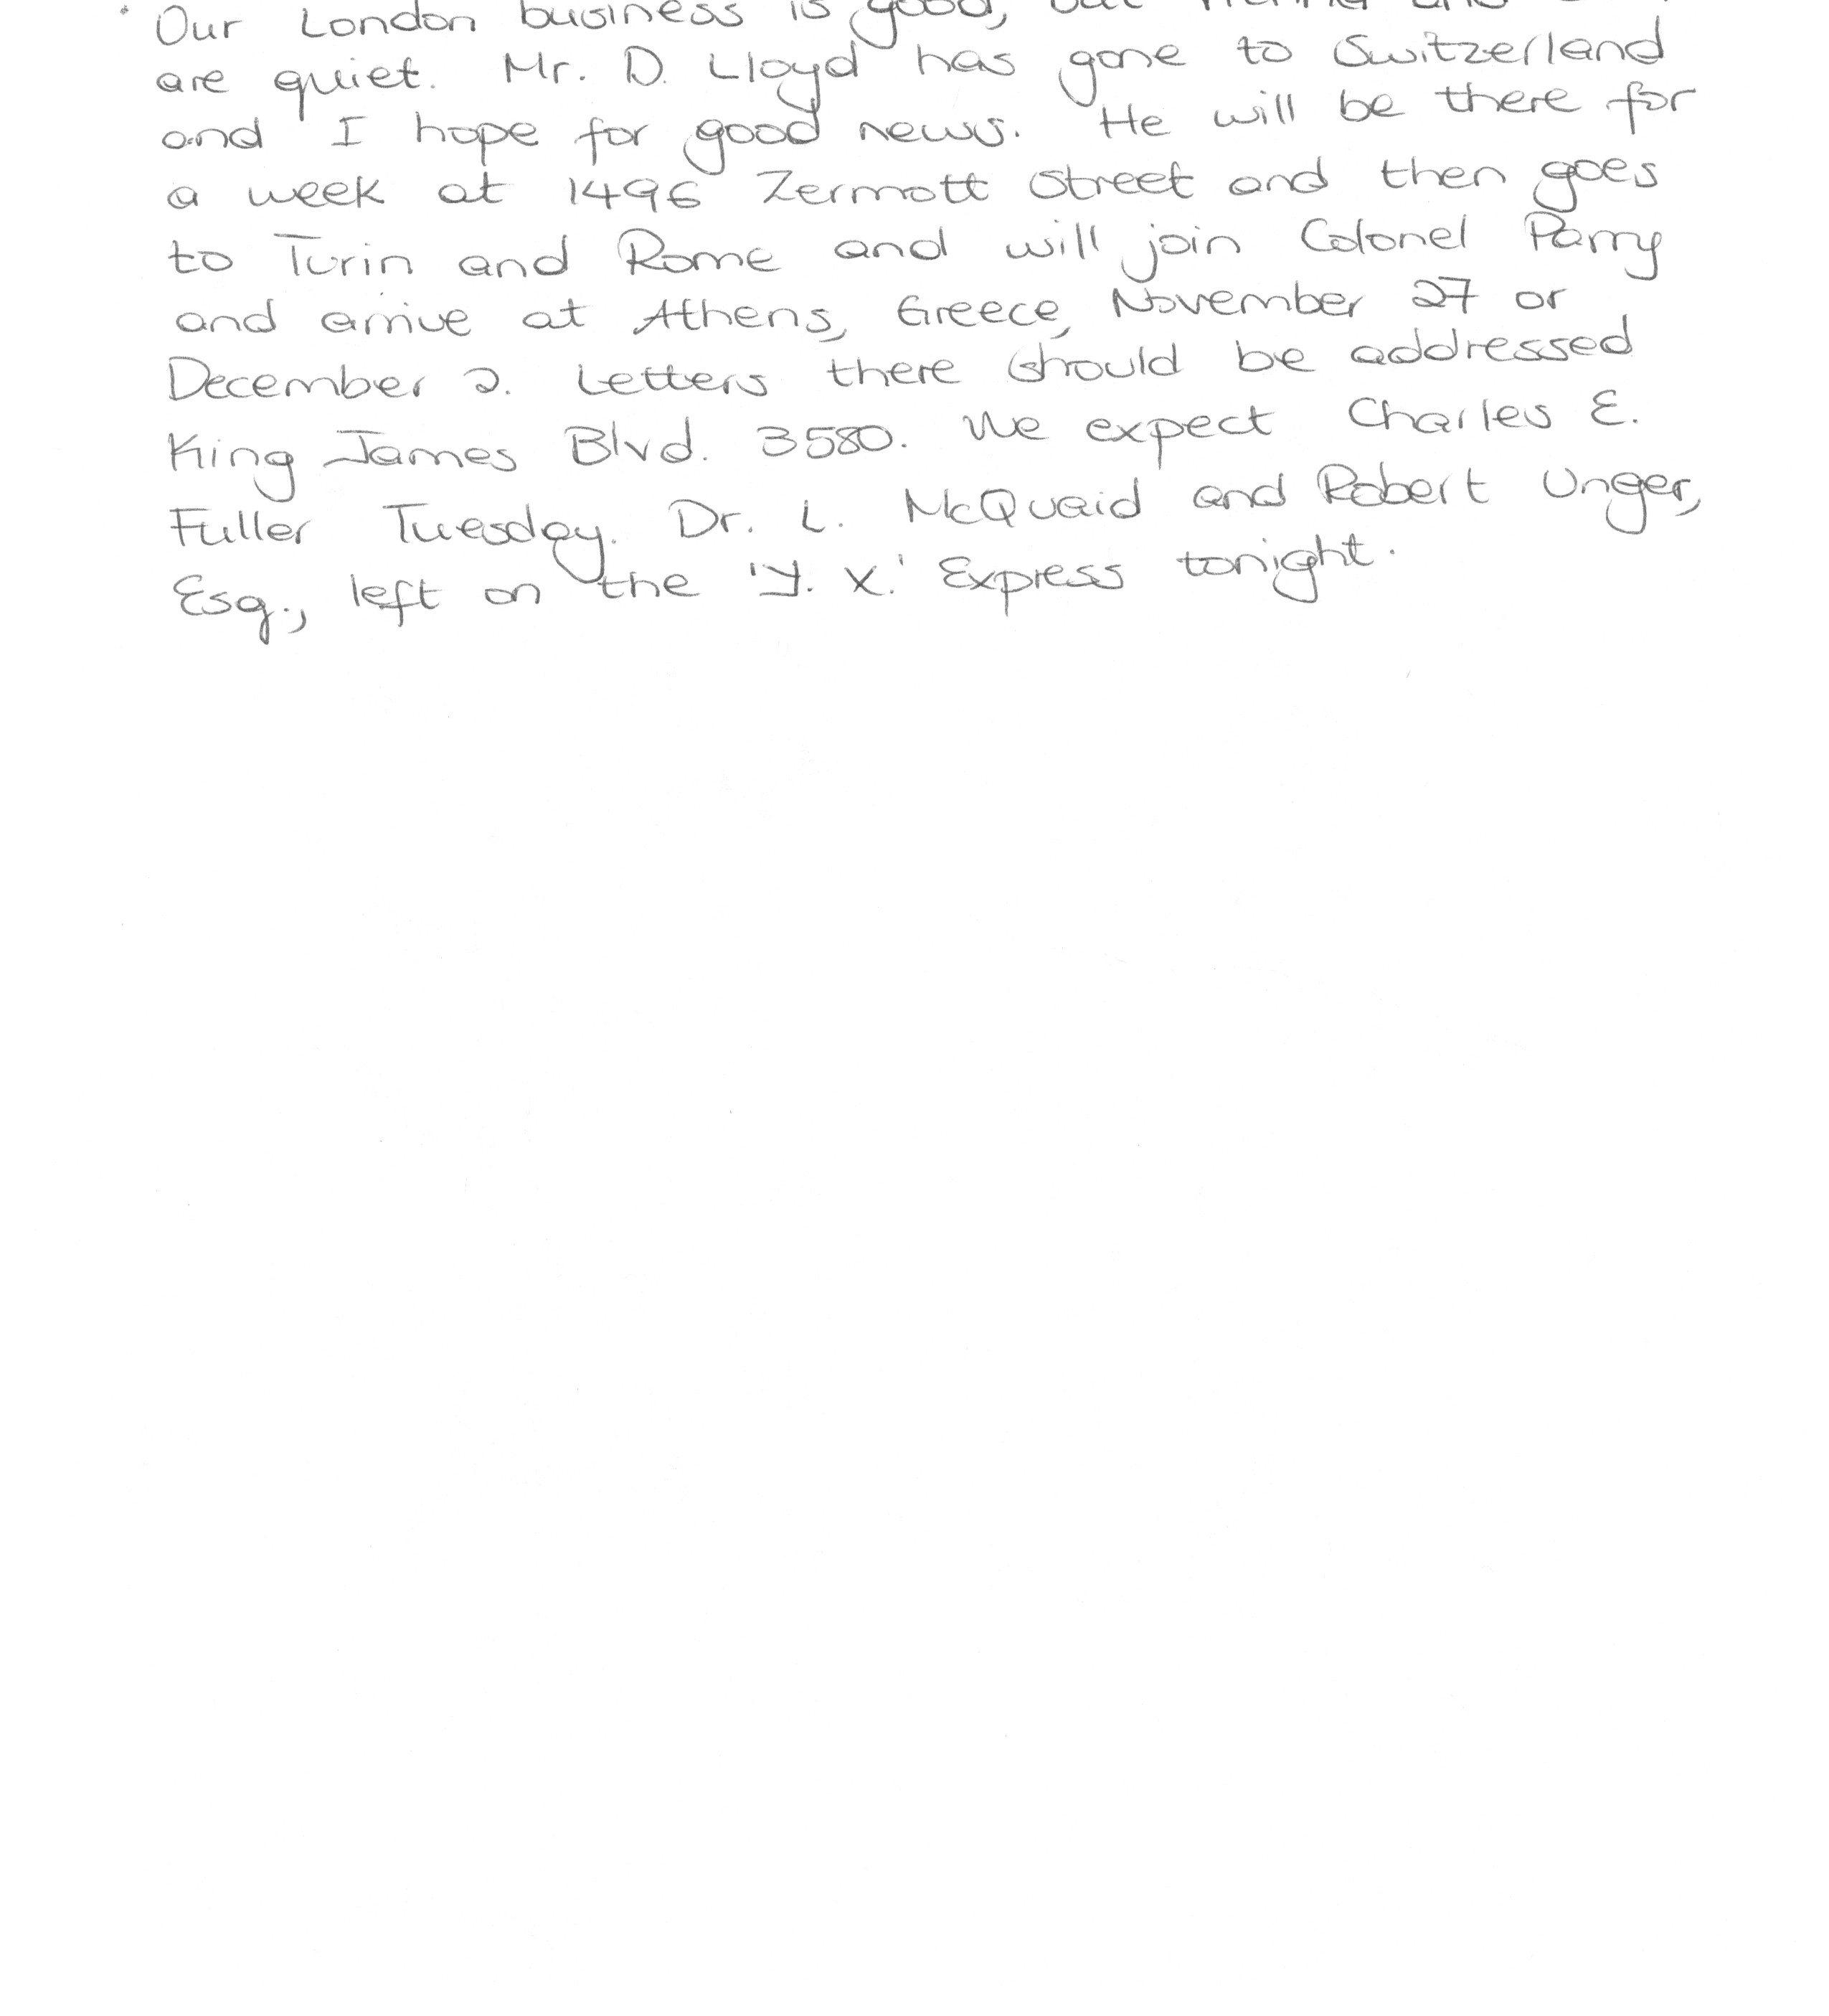 Our London business is good, but Vienna and
are quiet. Mr. D. Lloyd has gone to Switzerland
and I hope for good news. He will be there for
a week at 1496 Zermott Street and then goes
to Turin and Rome and will join Colonel Parry
and arrive at Athens, Greece, November 27 or
December 2. Letters there should be addressed
King James Blvd. 3580. We expect Charles E.
Fuller Tuesday. Dr. L. McQuaid and Robert Unger,
Esq., left on the 'Y. X.' Express tonight.